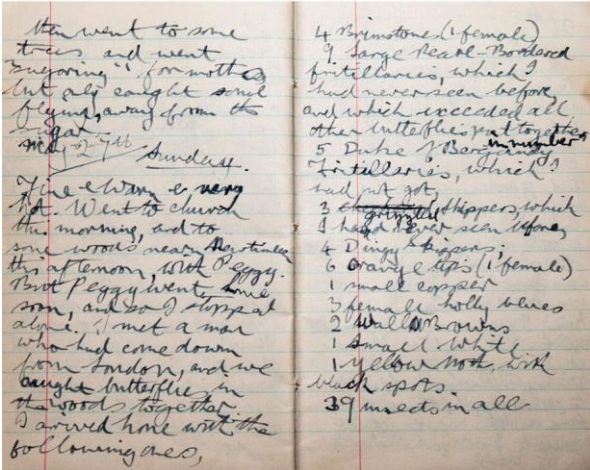 then went to some
trees and went
"sugaring" for moths
but only caught some
flying away from the
sugar
May 27th Sunday.
Fine & warm & very
hot. Went to church
this morning, and to
some woods near
this afternoon, with Peggy.
But Peggy went home
soon, and so I stopped
alone. I met a man
who had come down
from London, and we
caught butterflies in
the woods together
I arrived home with the
following ones,
4 Brimstones (1 female)
9 large Pearl-Bordered
fritillaries, which I
had never seen before,
and which exceeded all
other butterflies put together
in number
5 Duke of Burgundy
Fritillaries, which I
had not got,
3 grizzled skippers, which
I had never seen before,
4 Dingy skippers;
6 orange tips (1 female)
1 small copper
3 female holly blues
2 wall Browns
1 small white
1 yellow moth, with
black spots.
39 insects in all